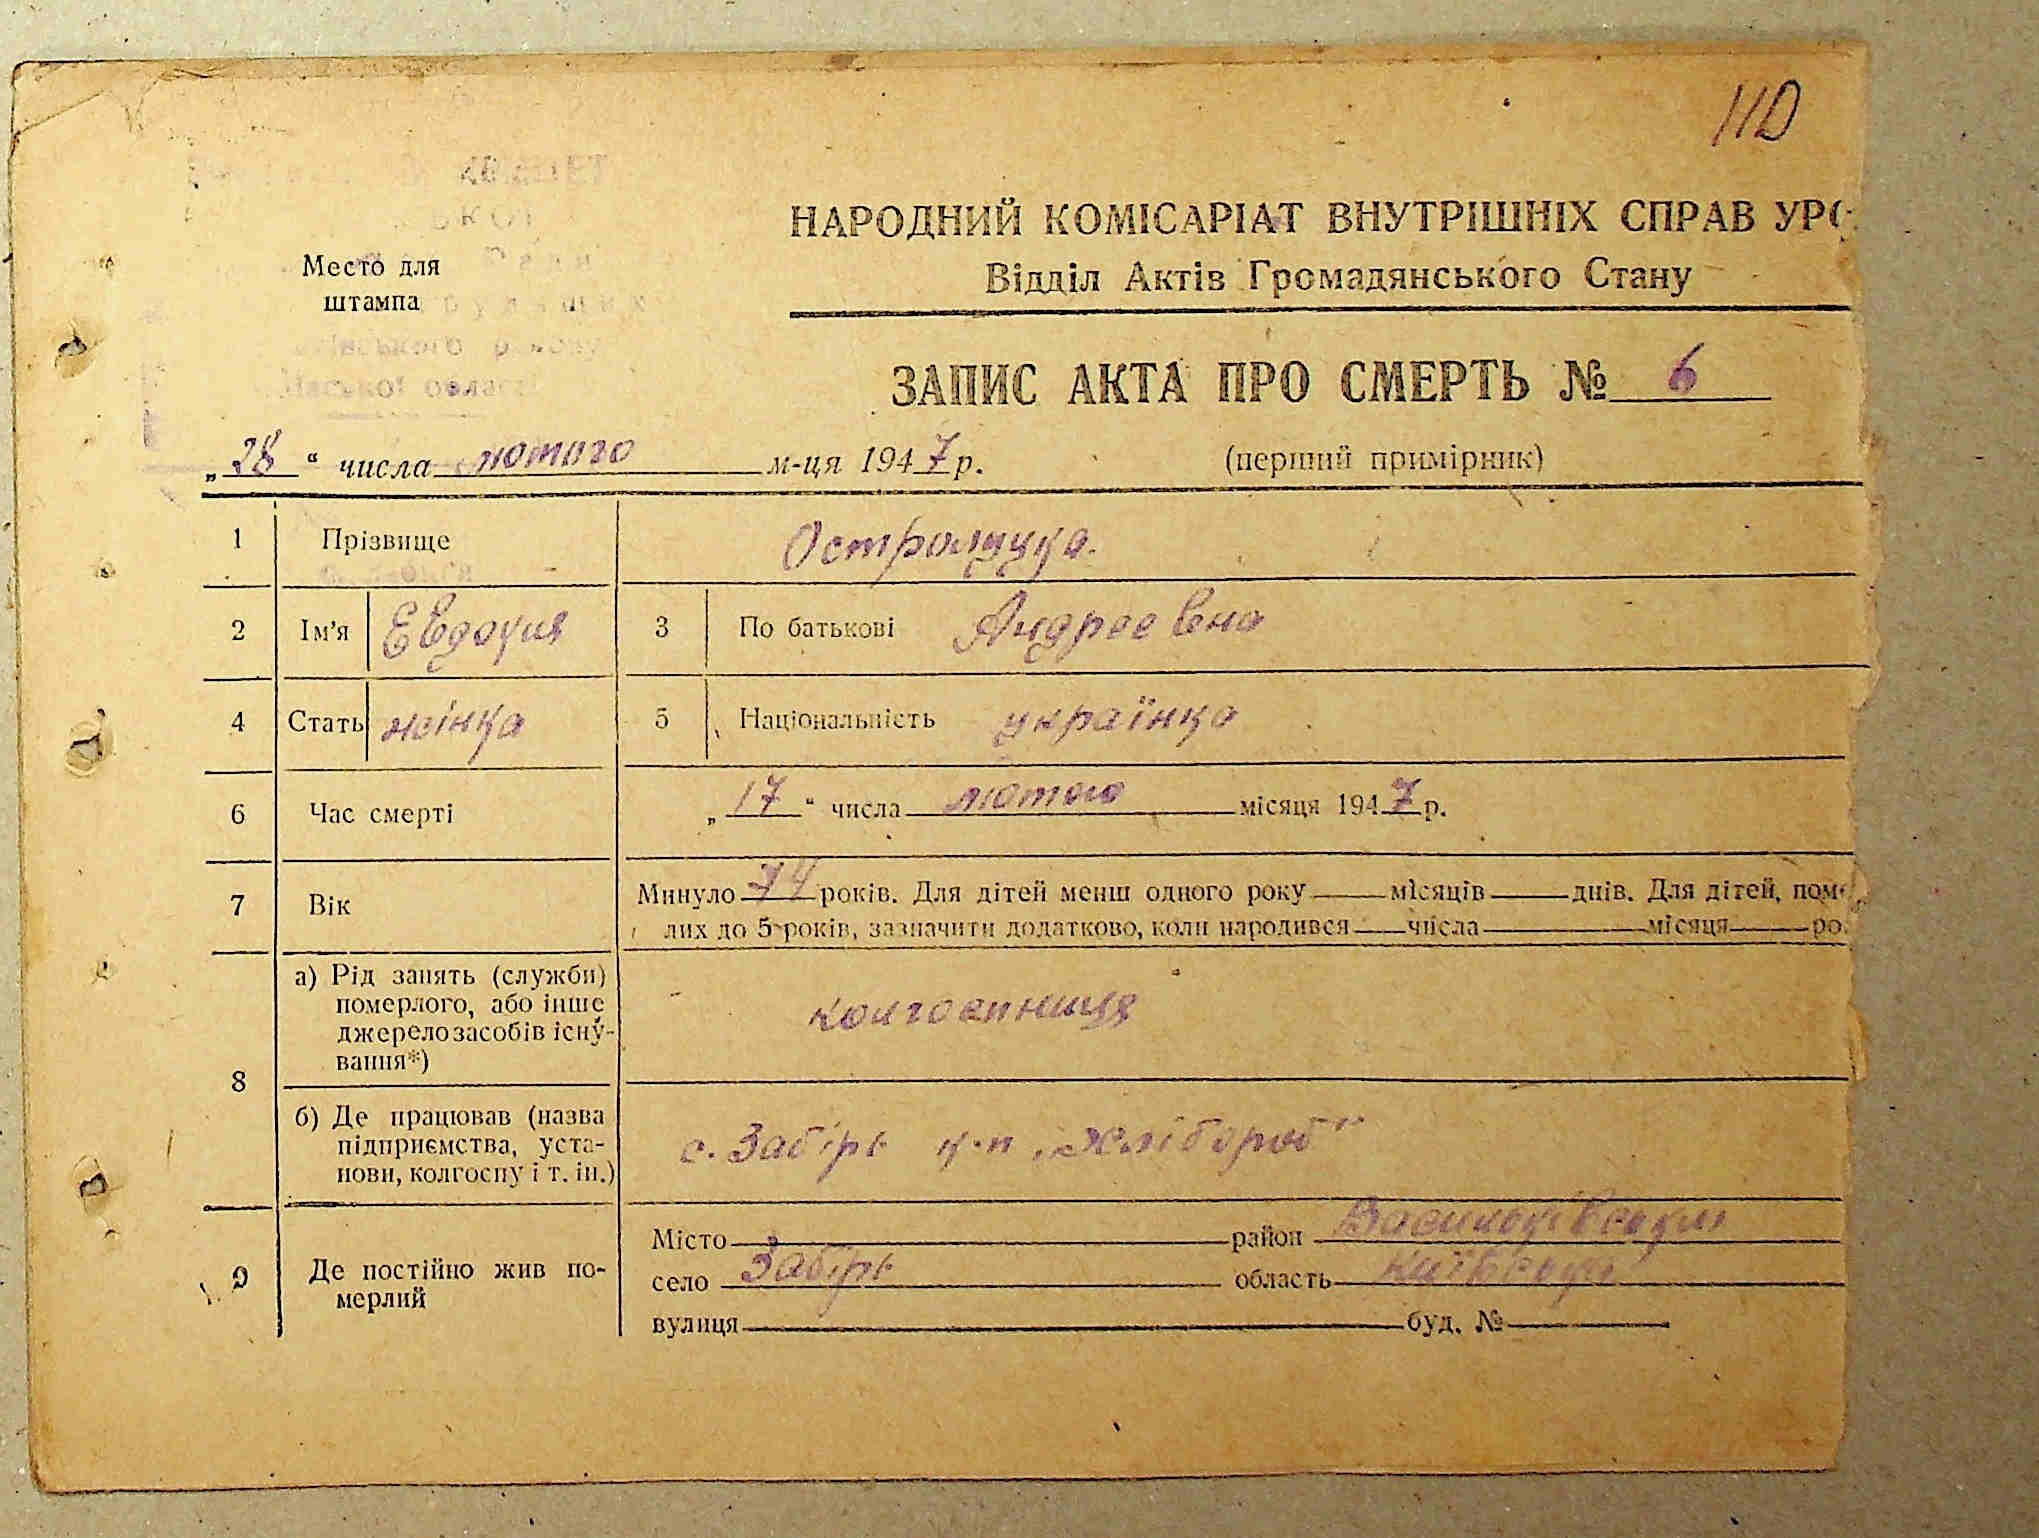 110
НАРОДНИЙ КОМІСАРІАТ ВНУТРІШНІХ СПРАВ УРС
Відділ Актів Громадянського Стану
Место для
штампа
ЗАПИС АКТА ПРО СМЕРТЬ № 6
„28“ числа лютого м-ця 1947 р. (перший примірник)
1 Прізвище Остролуцка.
2 Ім’я Евдокия 3 По батькові Андреевна
4 Стать жінка 5 Національність українка
6 Час смерті „17“ числа лютого місяця 1947 р.
7 Вік Минуло 74 років. Для дітей менш одного року — місяців — днів. Для дітей, поме
лих до 5 років, зазначити додатково, коли народився — числа — місяця — ро
8 а) Рід занять (служби)
померлого, або інше
джерело засобів існу-
вання*) колгоспниця
б) Де працював (назва
підприємства, уста-
нови, колгоспу і т. ін.) с. Забірь к-п „Хлібороб“
9 Де постійно жив по-
мерлий
Місто — район Васильківський
село Забірь область Київська
вулиця — буд. №